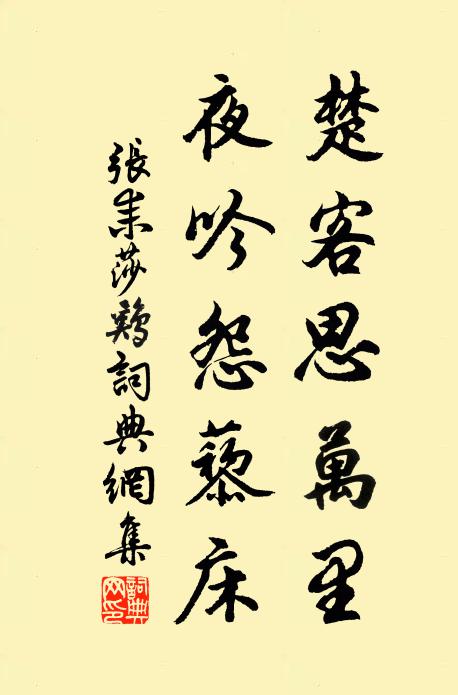 楚客思萬里
夜吟怨藜床
張耒莎鷄詞典網集
詞典網印